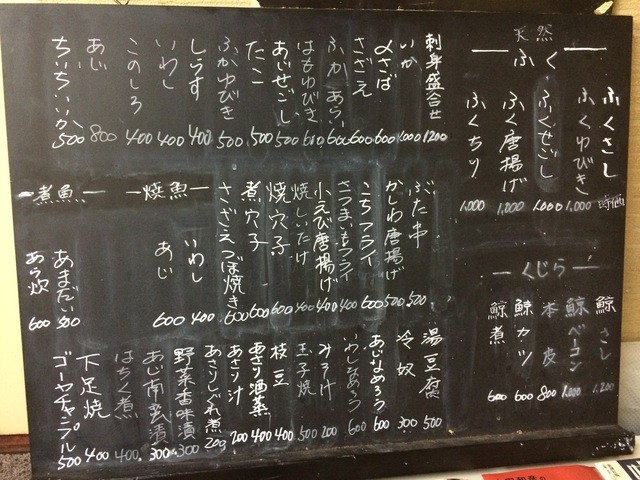 天然
ふく
ふくさし 時価
ふくゆびき 1,000
ふくせごし 1,000
ふく唐揚げ 1,000
ふくちり 1,000
くじら
鯨さし 1,200
鯨ベーコン 1,000
本皮 800
鯨カツ 600
鯨煮 600
刺身盛合せ 1200
いか 1,000
〆さば 600
さざえ 600
ふかあらい 600
はもゆびき 600
あじせごし 500
たこ 500
ふかゆびき 500
しらす 400
いわし 400
このしろ 400
あじ 800
ちいちいいか 500
ぶた串 500
かしわ唐揚げ 500
こちフライ 600
さつまいもフライ 400
小えび唐揚げ 400
焼しいたけ 400
焼穴子 600
煮穴子 600
さざえつぼ焼き 600
焼魚
いわし 400
あじ 600
煮魚
あまだい 800
あら炊 600
湯豆腐 500
冷奴 300
あじなめろう 600
いわしなめろう 600
みそ汁 200
玉子焼 500
枝豆 400
あさり酒蒸 400
あさり汁 200
あさりしぐれ煮 200
野菜香味漬 300
あじ南蛮漬 300
はちく煮 400
下足焼 400
ゴーヤチャンプル 500